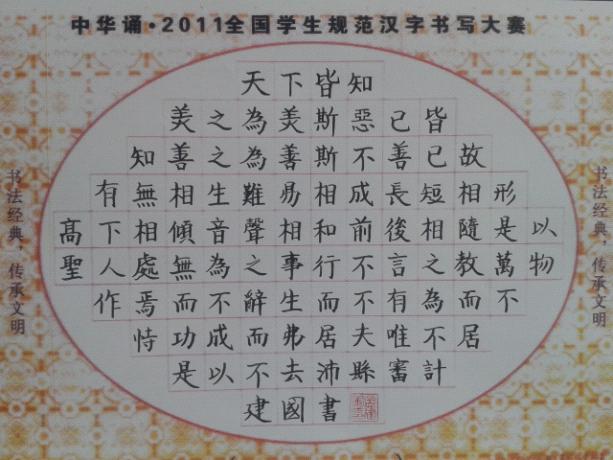 中华诵·2011全国学生规范汉字书写大赛
天下皆知
美之為美斯惡已皆
知善之為善斯不善已故
有無相生難易相成長短相形
高下相傾音聲相和前後相隨是以
聖人處無為之事行不言之教萬物
作焉而不辭生而不有為而不
恃功成而弗居夫唯不居
是以不去沛縣審計
建國書
书法经典、传承文明
书法经典、传承文明